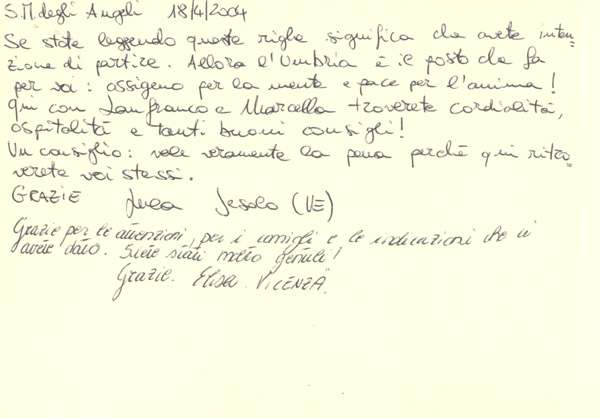 S.M. degli Angeli 18/4/2004
Se state leggendo queste righe significa che avete inten-
zione di partire. Allora l'Umbria è il posto che fa
per voi: ossigeno per la mente e pace per l'anima!
Qui con Lanfranco e Marcella troverete cordialità,
ospitalità e tanti buoni consigli!
Un consiglio: vale veramente la pena perché qui ritro-
verete voi stessi.
GRAZIE Luca Jesolo (VE)
Grazie per le attenzioni, per i consigli e le indicazioni che ci
avete dato. Siete stati molto gentili!
Grazie. Elisa. VICENZA